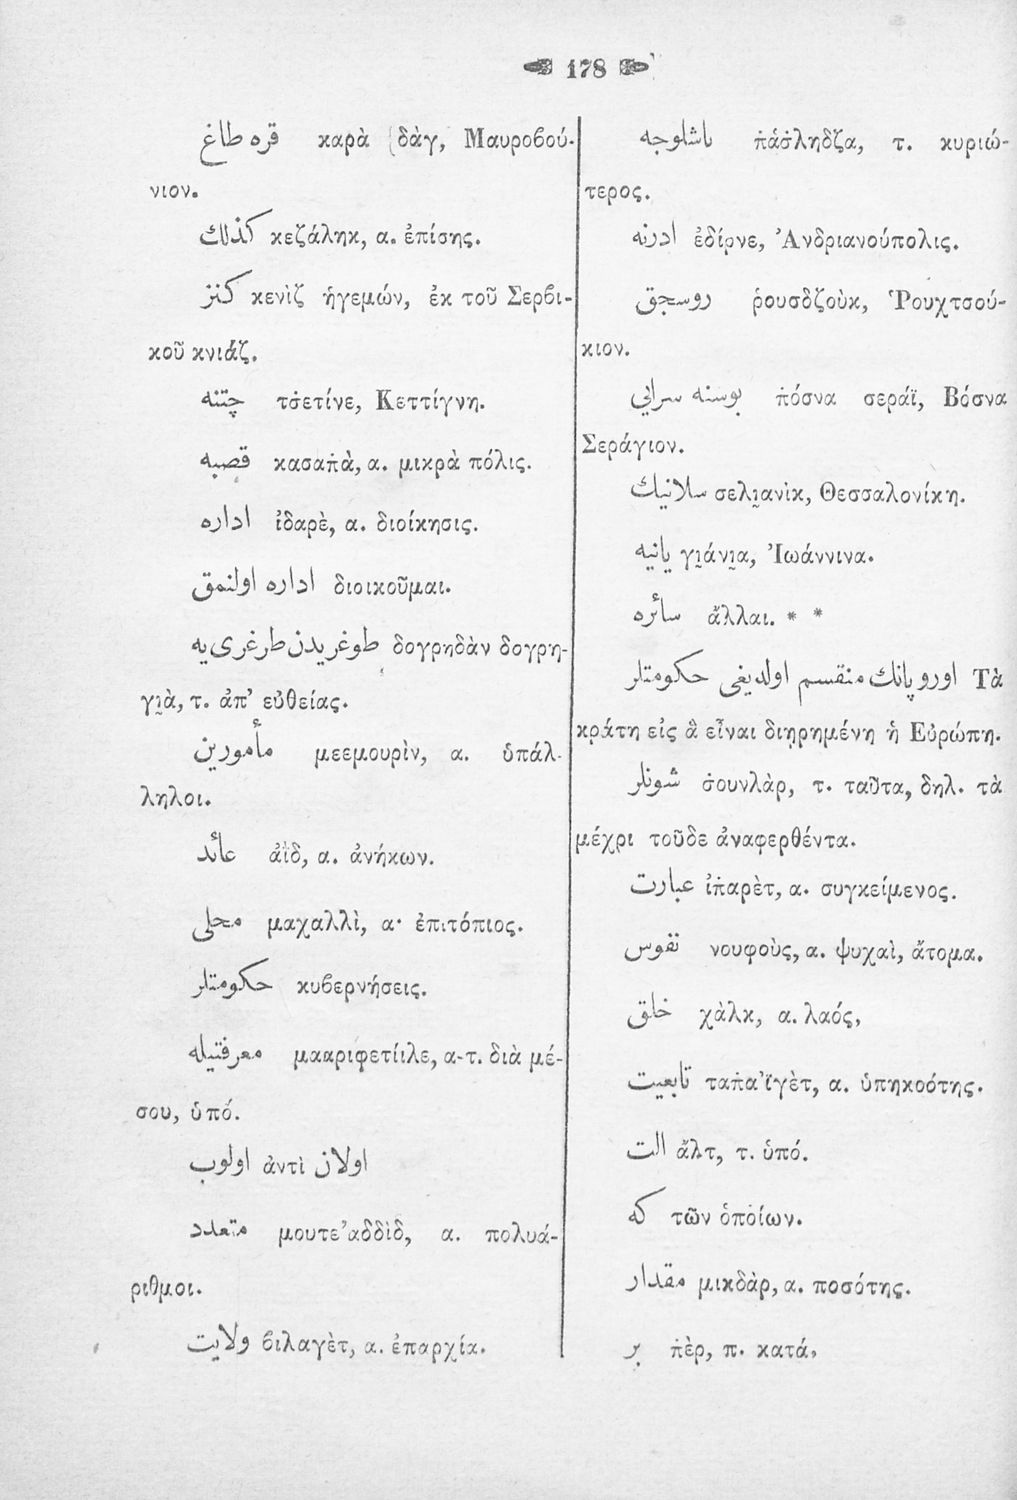 178
قره طاغ καρὰ δὰγ, Μαυροβού-
νιον.
كذلك κεζάληκ, α. ἐπίσης.
كنز κενὶζ ἡγεμών, ἐκ τοῦ Σερβι-
κοῦ κνιάζ.
چتنه τσ̇ετίνε, Κεττίγνη.
قصبه κασαπ̇ὰ, α. μικρὰ πόλις.
اداره ἰδαρὲ, α. διοίκησις.
اداره اولنمق διοικοῦμαι.
طوغریدن طرغری یه δογρηδὰν δογρη-
γι̯ὰ, τ. ἀπ’ εὐθείας.
مأمورین μεεμουρὶν, α. ὑπάλ-
ληλοι.
عائد ἀὶδ, α. ἀνήκων.
محلی μαχαλλὶ, α· ἐπιτόπιος.
حكومتلر κυβερνήσεις.
معرفتیله μααριφετίιλε, α-τ. διὰ μέ-
σου, ὑπό.
اولوب ἀντὶ اولان
متعدد μουτε’αδδὶδ, α. πολυά-
ριθμοι.
ولایت βιλαγὲτ, α. ἐπαρχία.
باشلوجه π̇άσ̇ληδζα, τ. κυριώ-
τερος.
ادرنه ἐδίρνε, Ἀνδριανούπολις.
روسجق ῥουσδζοὺκ, Ῥουχτσού-
κιον.
بوسنه سرایی π̇όσνα σεράϊ, Βόσνα
Σεράγιον.
سلانیك σελι̯ανὶκ, Θεσσαλονίκη.
یانیه γι̯άνι̯α, Ἰωάννινα.
سائره ἄλλαι. * *
اوروپانك منقسم اولدیغی حكومتلر Τὰ
κράτη εἰς ἃ εἶναι διῃρημένη ἡ Εὐρώπη.
شونلر σ̇ουνλὰρ, τ. ταῦτα, δηλ. τὰ
μέχρι τοῦδε ἀναφερθέντα.
عبارت ἰπ̇αρὲτ, α. συγκείμενος.
نفوس νουφοὺς, α. ψυχαὶ, ἄτομα.
خلق χὰλκ, α. λαός,
تابعیت ταπ̇α’ϊγὲτ, α. ὑπηκοότης.
الت ἄλτ, τ. ὑπό.
كه τῶν ὁποίων.
مقدار μικδὰρ, α. ποσότης.
بر π̇ὲρ, π. κατά,